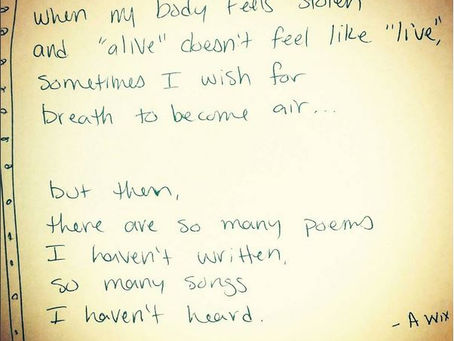 when my body feels stolen
and "alive" doesn't feel like "live",
sometimes I wish for
breath to become air...
but then,
there are so many poems
I haven't written,
so many songs
I haven't heard.
- A Wix